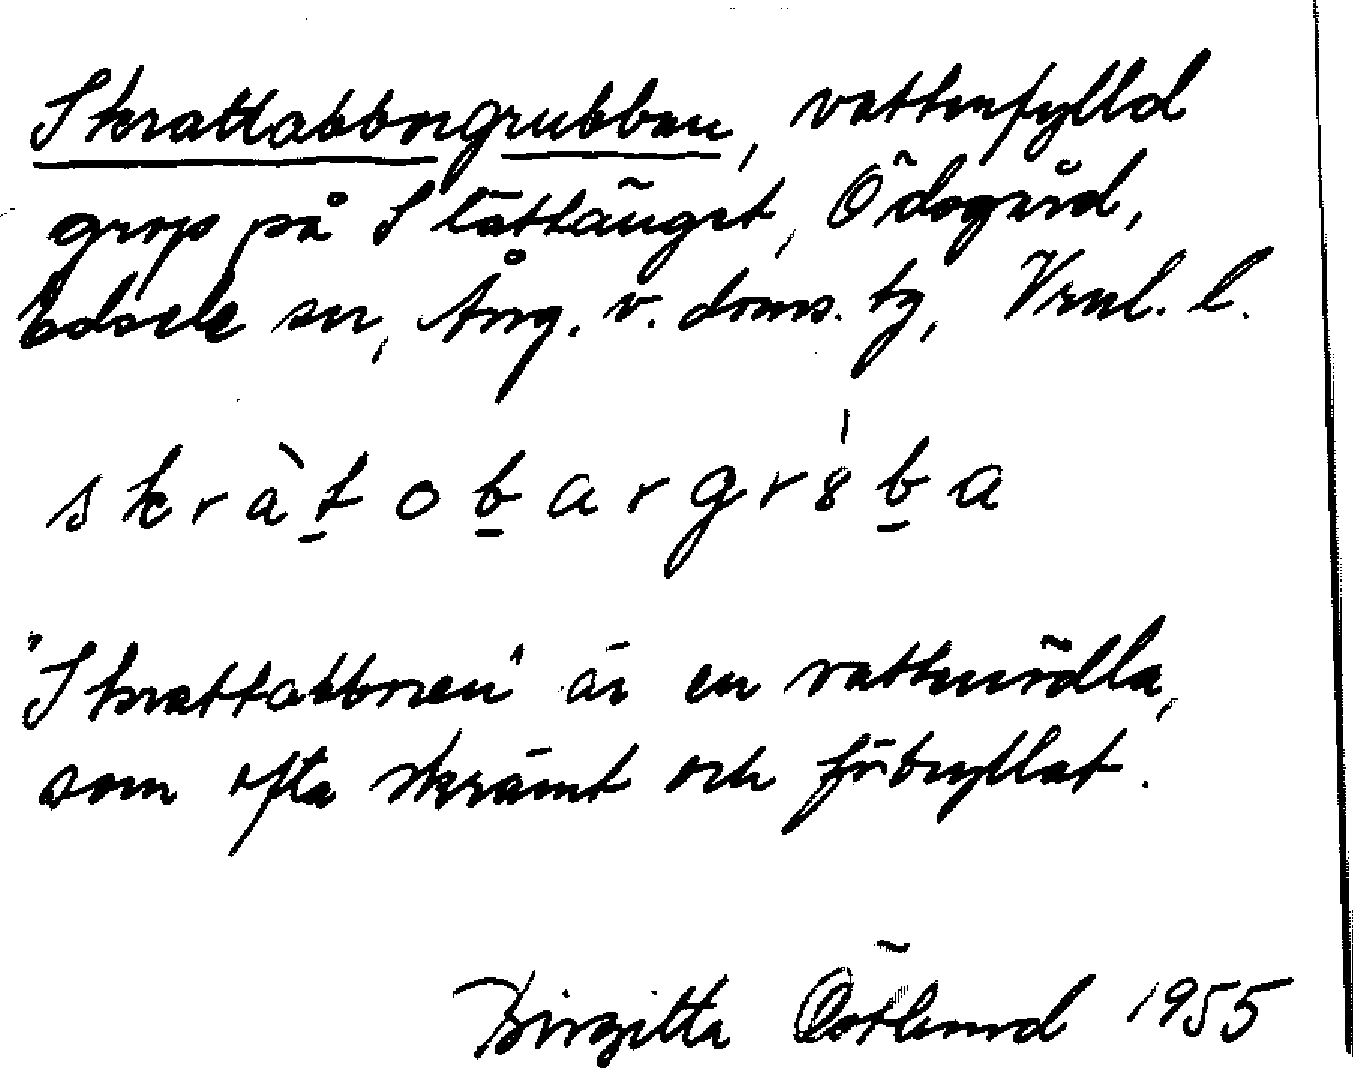 Skrattabborgrubban, vattenfylld
grop på Slättänget, Ödsgård,
Edsele sn, Ång. v. doms. tg, Vrnl. l.
skràtobargrȣ̀ba
"Skrattabborren" är en vattenödla,
som ofta skrämt och förbryllat.
Birgitta Östlund 1955